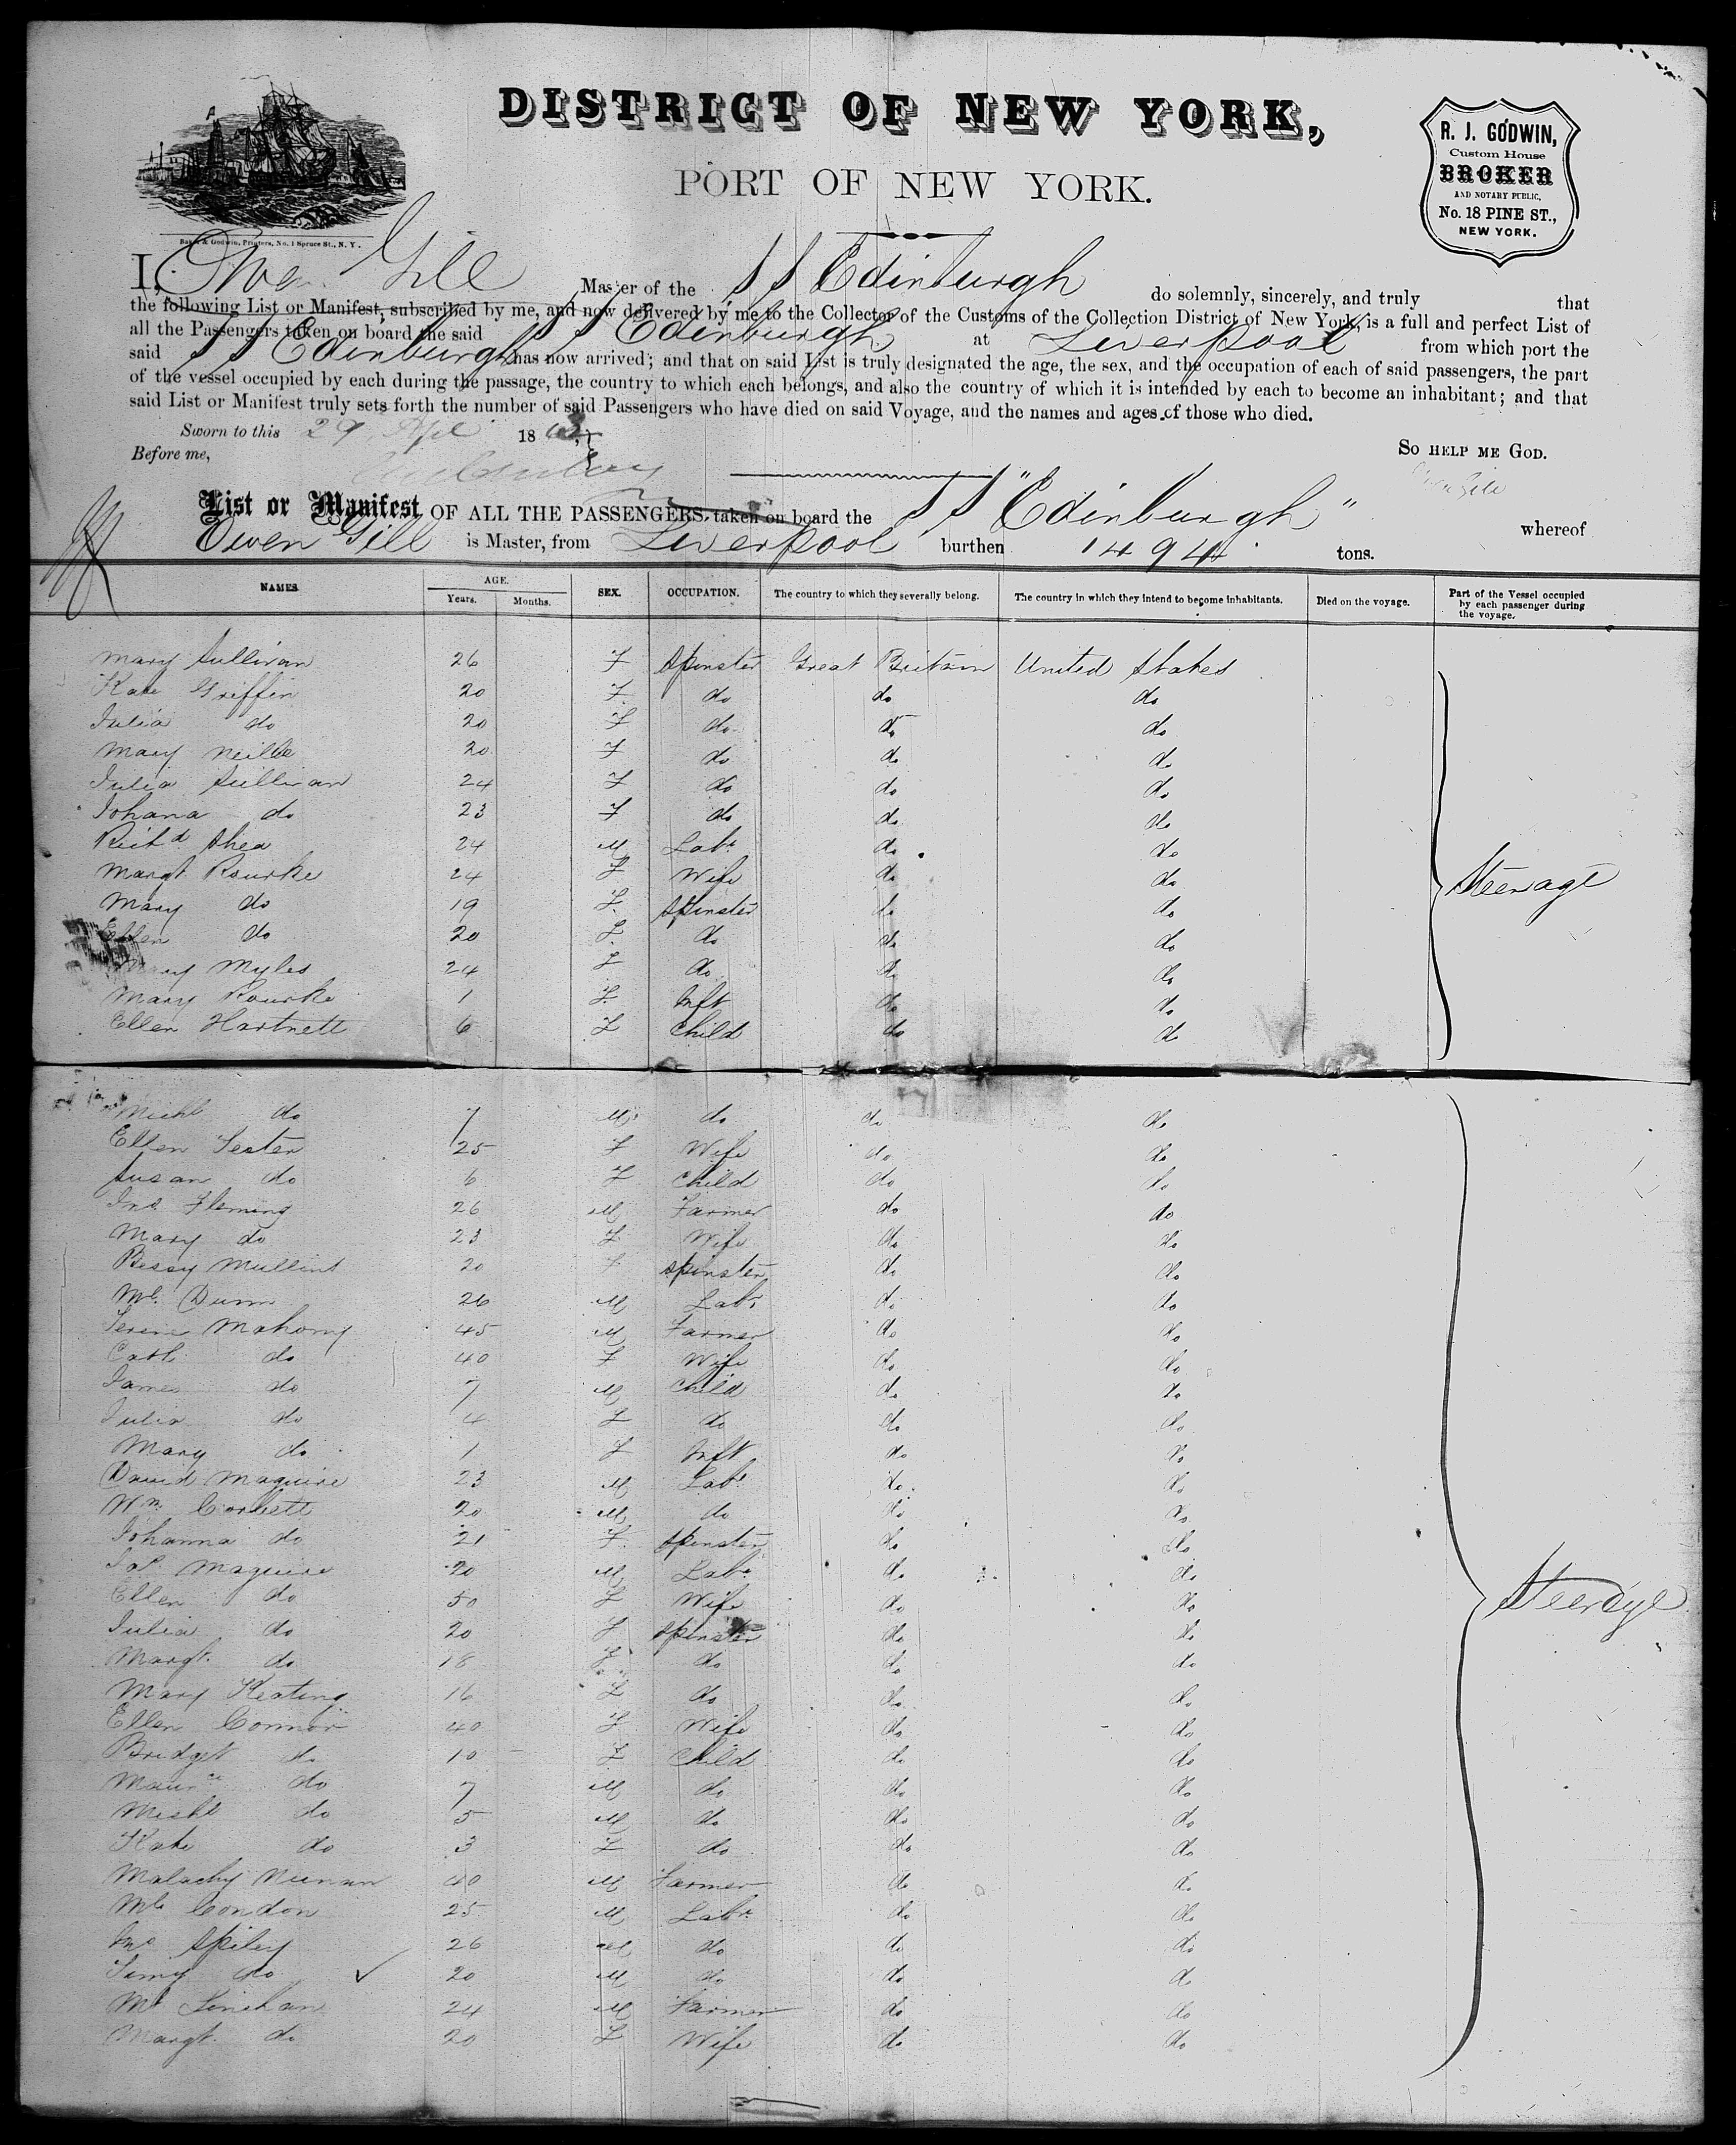 DISTRICT OF NEW YORK,
PORT OF NEW YORK.
R. J. GODWIN,
Custom House
BROKER
AND NOTARY PUBLIC,
No. 18 PINE ST.,
NEW YORK.
Baker & Godwin, Printers, No. 1 Spruce St., N. Y.
I, Owen Gill Master of the SS Edinburgh do solemnly, sincerely, and truly that
the following List or Manifest, subscribed by me, and now delivered by me to the Collector of the Customs of the Collection District of New York, is a full and perfect List of
all the Passengers taken on board the said SS Edinburgh at Liverpool from which port the
said SS Edinburgh has now arrived; and that on said List is truly designated the age, the sex, and the occupation of each of said passengers, the part
of the vessel occupied by each during the passage, the country to which each belongs, and also the country of which it is intended by each to become an inhabitant; and that
said List or Manifest truly sets forth the number of said Passengers who have died on said Voyage, and the names and ages of those who died.
Sworn to this 29 Apl 1863, So HELP ME GOD.
Before me, Owen Gill
List or Manifest OF ALL THE PASSENGERS taken on board the SS "Edinburgh" whereof
Owen Gill is Master, from Liverpool burthen 1494 tons.
NAMES AGE. SEX. OCCUPATION. The country to which they severally belong. The country in which they intend to become inhabitants. Died on the voyage. Part of the Vessel occupied by each passenger during the voyage.
Years. Months.
Mary Sullivan 26 F Spinster Great Britain United States
Kate Griffin 20 F do do do
Julia do 20 F do do do
Mary Neille 20 F do do do
Julia Sullivan 24 F do do do
Johana do 23 F do do do
Richd Shea 24 M Labr do do
Margt Rourke 24 F Wife do do Steerage
Mary do 19 F Spinster do do
Ellen do 20 F do do do
Mary Myles 24 F do do do
Mary Rourke 1 F Inft do do
Ellen Hartnett 6 F Child do do
Michl do 7 M do do do
Ellen Lester 25 F Wife do do
Susan do 6 F Child do do
Jno Fleming 26 M Farmer do do
Mary do 23 F Wife do do
Bessy Mullins 20 F Spinster do do
Ml Dunn 26 M Labr do do
Mahony 45 M Farmer do do
Cath do 40 F Wife do do
James do 7 M Child do do
Julia do 4 F do do do
Mary do 1 F Inft do do
David Maguire 23 M Labr do do
Wm Corbett 20 M do do do
Johanna do 21 F Spinster do do
Maguire 20 M Labr do do
Ellen do 50 F Wife do do Steerage
Julia do 20 F Spinster do do
Margt do 18 F do do do
Mary Keating 16 F do do do
Ellen Connor 40 F Wife do do
Bridget do 10 F Child do do
Maurce do 7 M do do do
Michl do 5 M do do do
Kate do 3 F do do do
Malachy Nunan 40 M Farmer do do
Ml Condon 25 M Labr do do
Jno Spiley 26 M do do do
do 20 M do do do
Ml Linehan 24 M Farmer do do
Margt do 20 F Wife do do